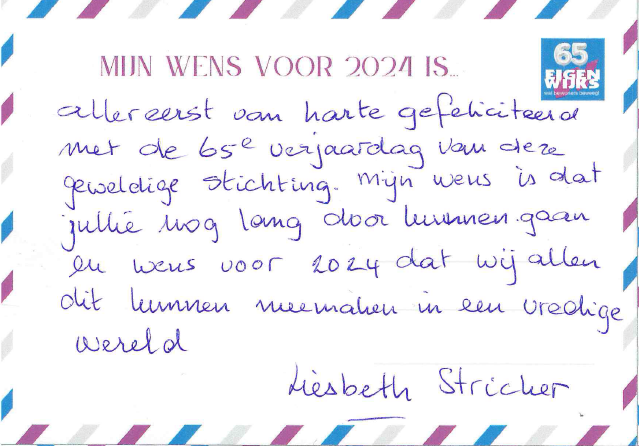 MIJN WENS VOOR 2024 IS...
65
EIGEN
WIJKS
allereerst van harte gefeliciteerd
met de 65e verjaardag van deze
geweldige stichting. Mijn wens is dat
jullie nog lang door kunnen gaan
en wens voor 2024 dat wij allen
dit kunnen meemaken in een vredige
wereld
Liesbeth Stricker